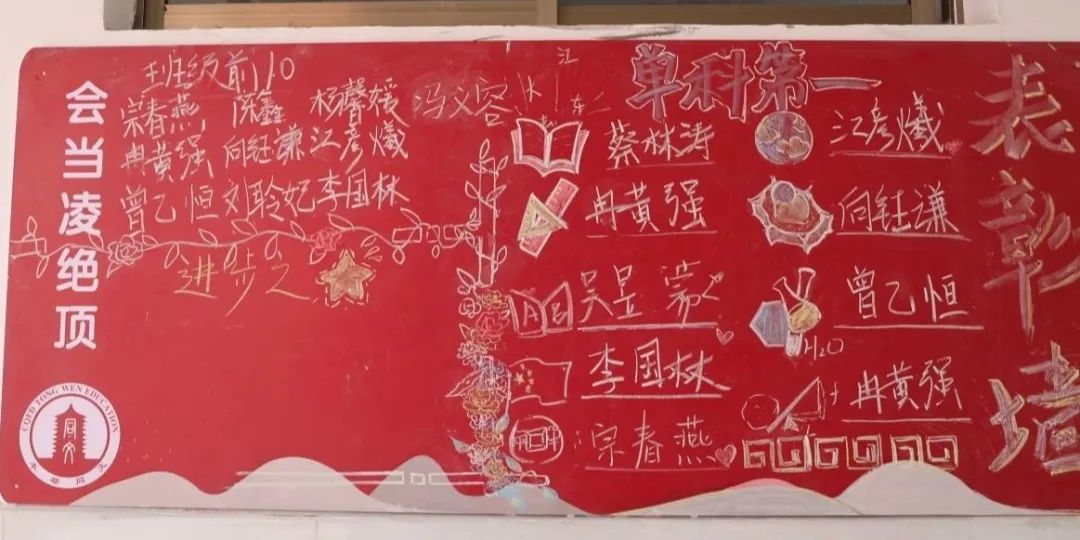 会当凌绝顶
班级前10
宗春燕 陈鑫 杨馨媛 冯文容
冉黄强 向钰谦 江彦爔
曾乙恒 刘聆妃 李国林
进步之
单科第一
蔡林涛
冉黄强
吴昱
李国林
宗春燕
江彦爔
向钰谦
曾乙恒
H2O
冉黄强
表彰墙
TONG WEN EDUCATION
同文